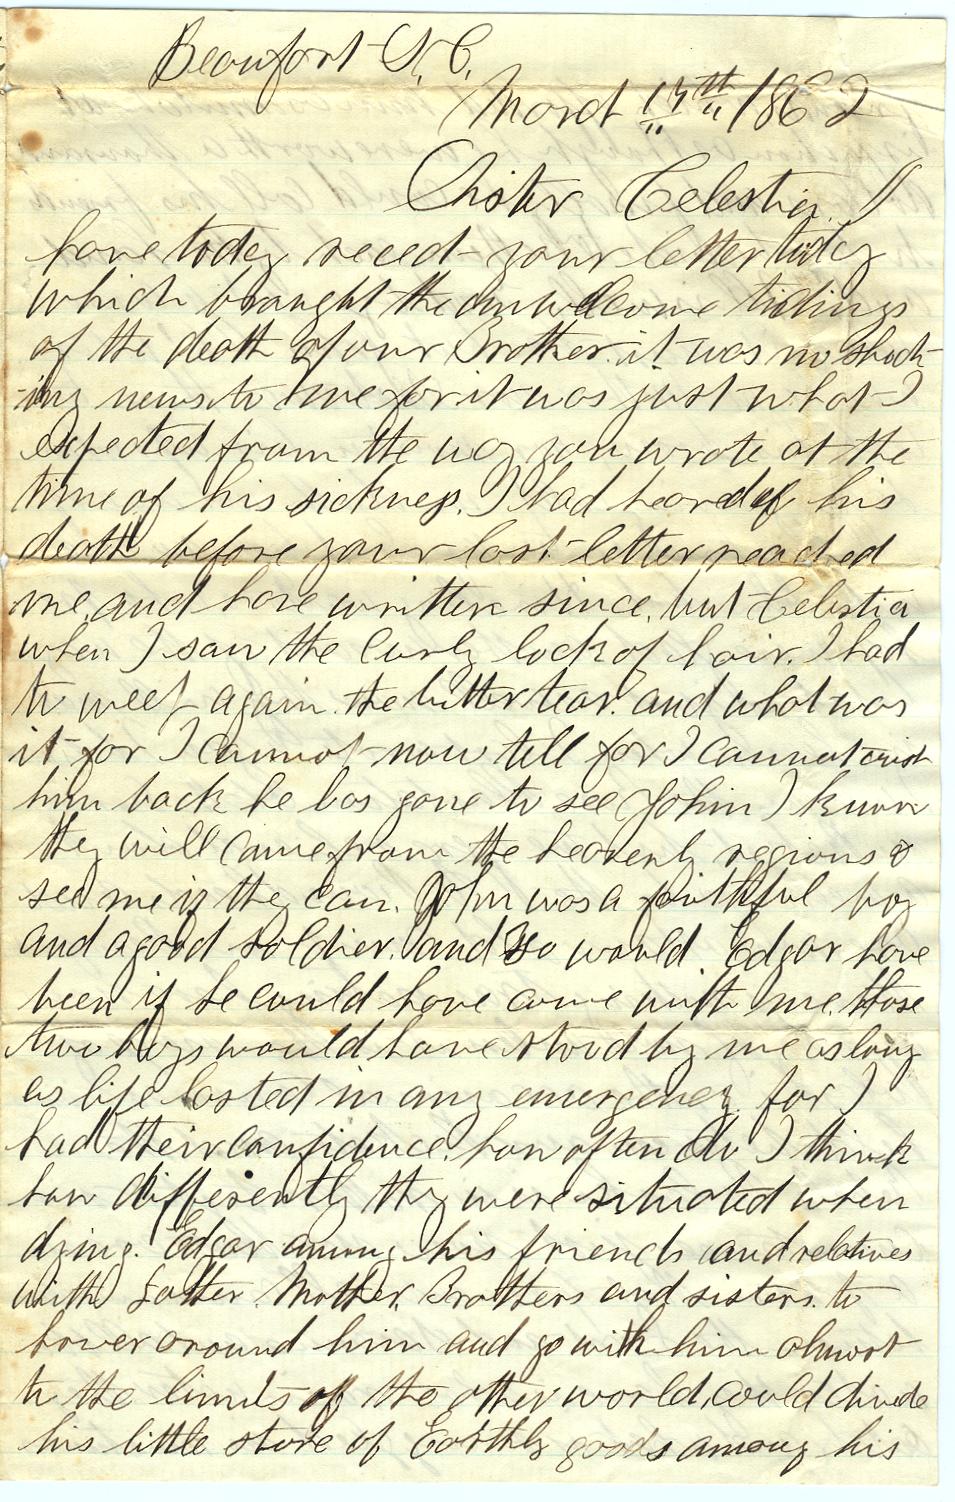 Beaufort S. C.
March 17th 1862
Sister Celestia //
have today reced your letter today
which brought the unwelcome tidings
of the death of our Brother. it was no shock-
-ing news to me for it was just what I
expected from the way you wrote at the
time of his sickness. I had heard of his
death before your last letter reached
me, and have written since, but Celestia
when I saw the Curly lock of hair. I had
to weep again the bitter tear. and what was
it for I cannot now tell for I cannot wish
him back he has gone to see John I know
they will come from the heavenly regions &
see me if they can. John was a faithful boy
and a good soldier. and so would Edgar have
been if he could have come with me. those
two boys would have stood by me as long
as life lasted in any emergency for I
had their confidence. how often do I think
how differently they were situated when
dying. Edgar among his friends and relatives
with Father Mother, Brothers and sisters. to
hover around him and go with him almost
to the limits of the other world, could divide
his little store of Earthly goods among his